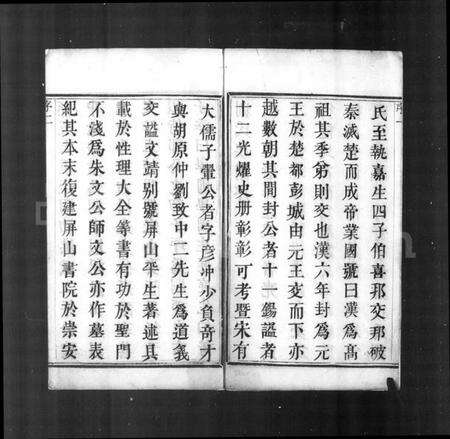 氏至執嘉生四子伯喜邦交邦破
秦滅楚而成帝業國號曰漢爲高
祖其季弟則交也漢六年封爲元
王於楚都彭城由元王交而下亦
越數朝其間封公者十一錫諡者
十二光燿史册彰彰可考暨宋有
大儒子翬公者字彦冲少負奇才
與胡原仲劉致中二先生爲道義
交諡文靖别號屏山平生著述具
載於性理大全等書有功於聖門
不淺爲朱文公師文公亦作墓表
紀其本末復建屏山書院於崇安
序二